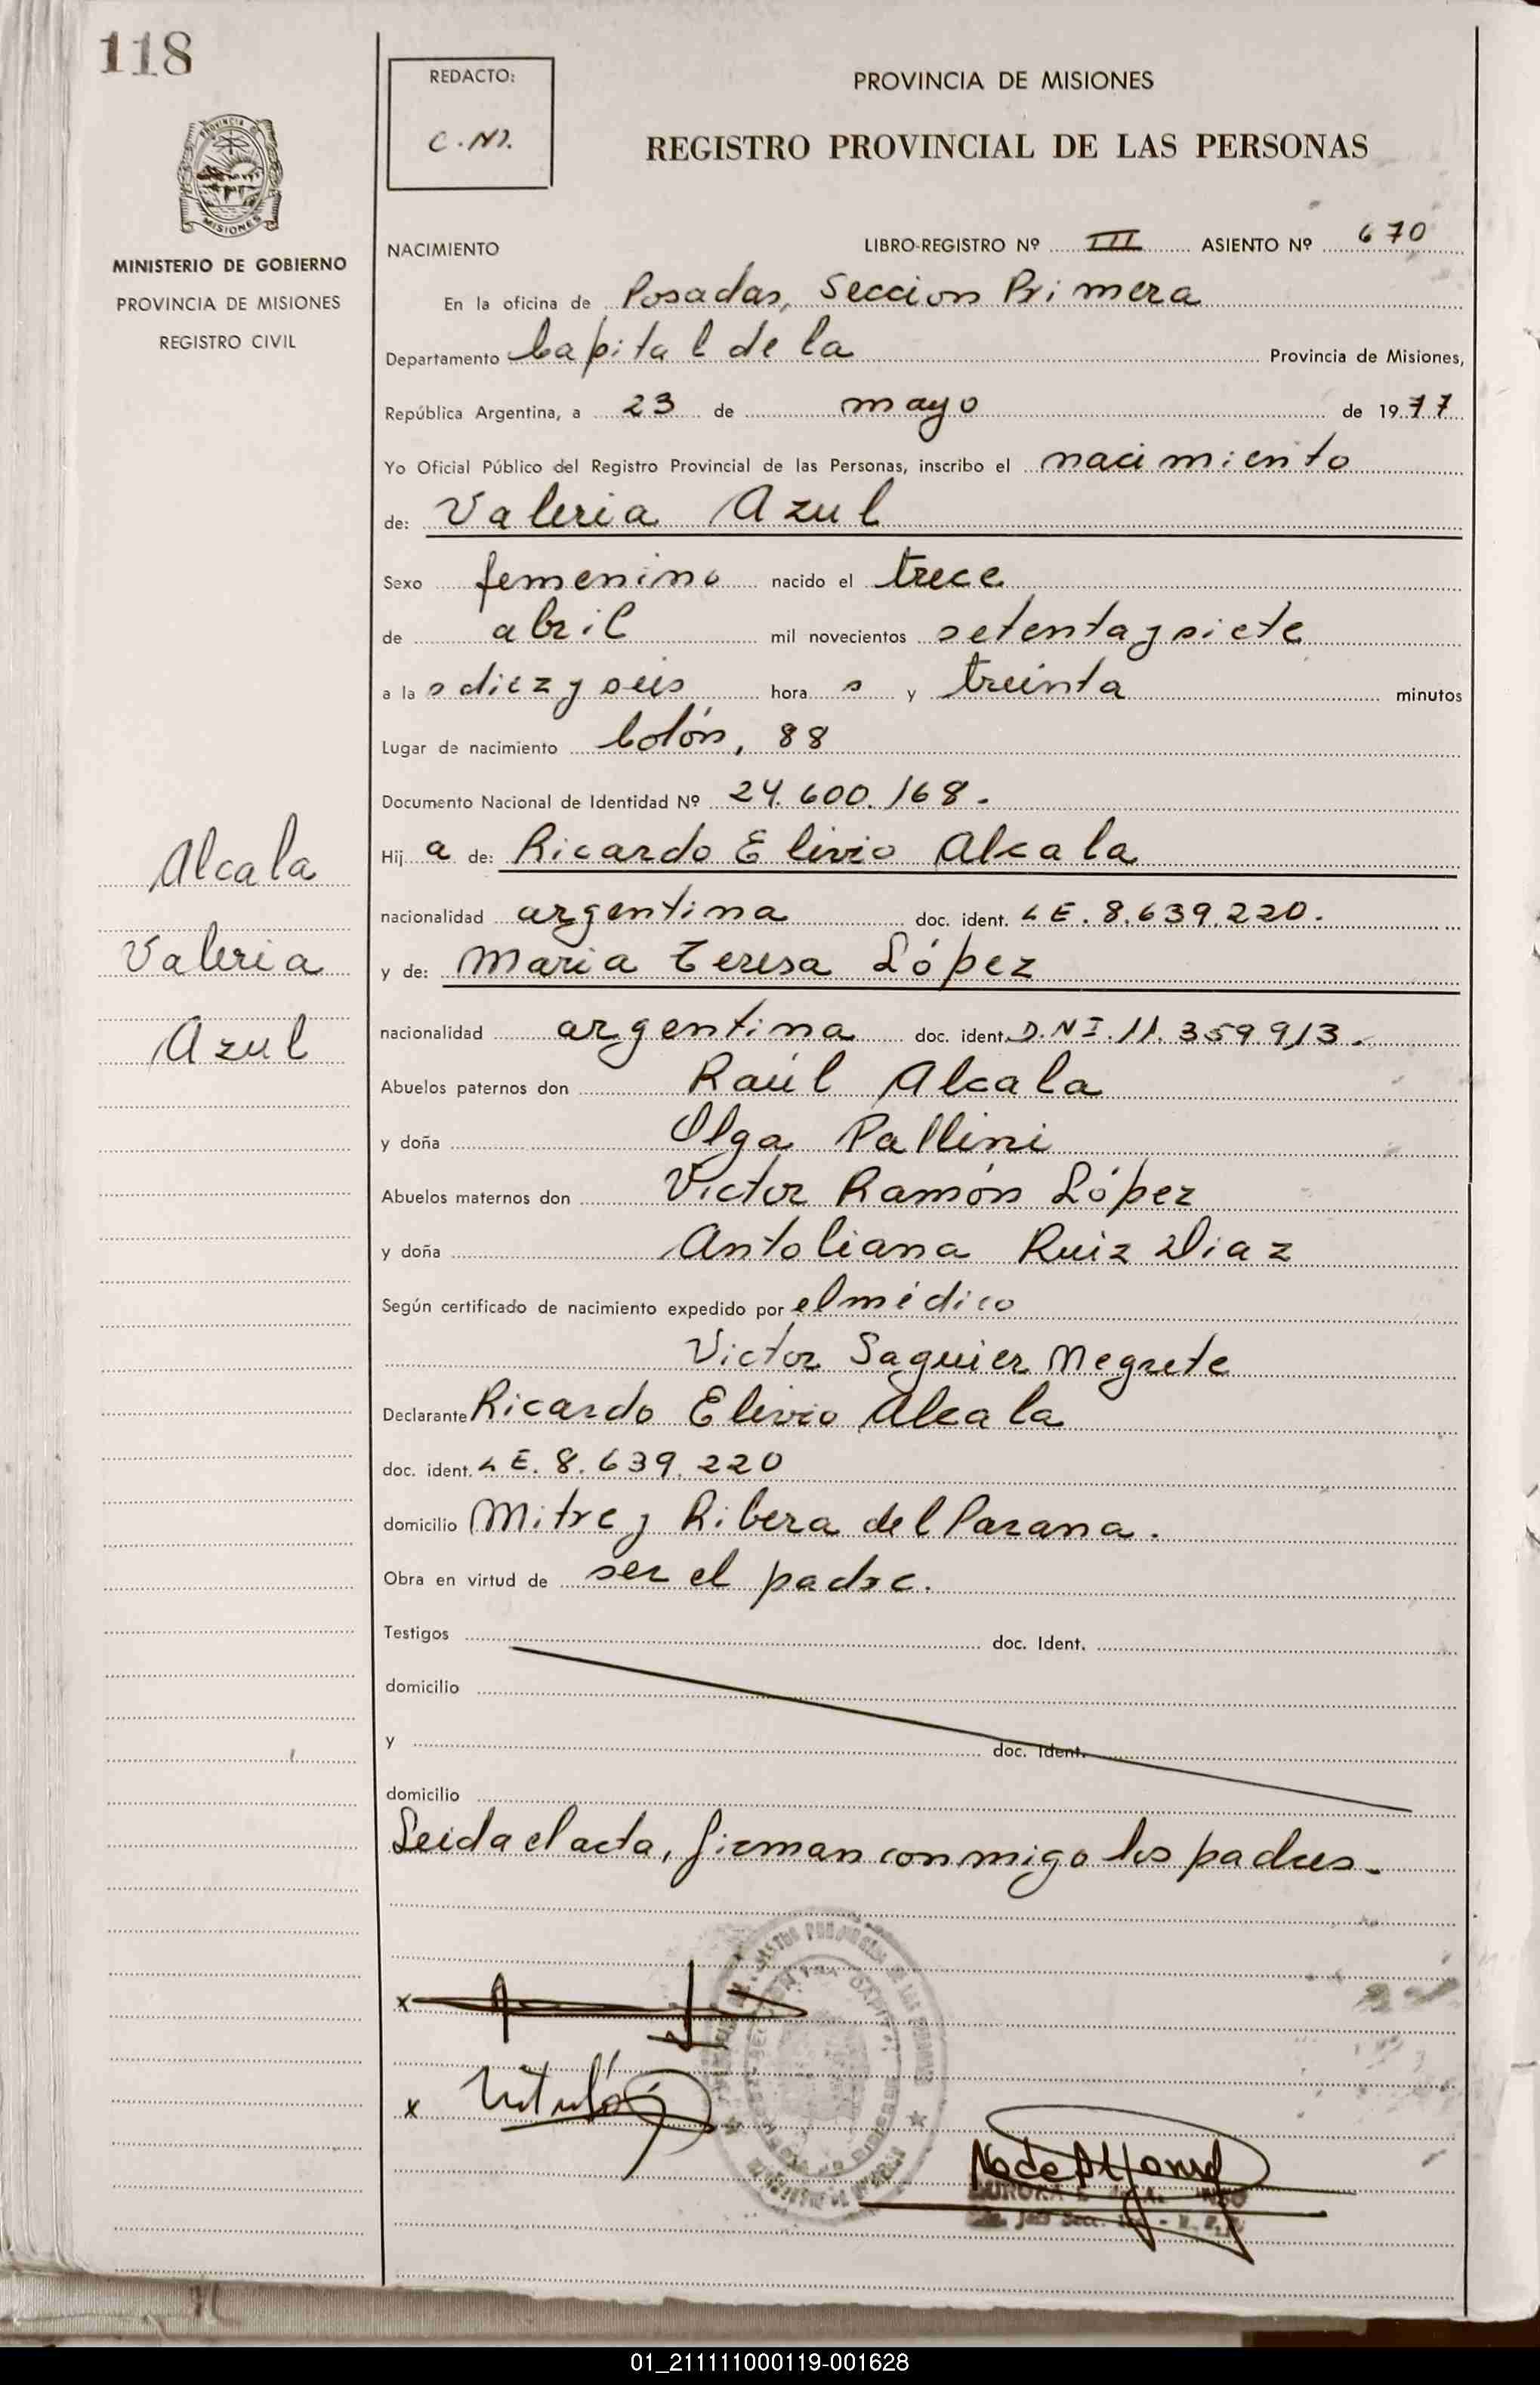 118
REDACTO:
C.N.
PROVINCIA DE MISIONES
REGISTRO PROVINCIAL DE LAS PERSONAS
PROVINCIA DE
MISIONES
MINISTERIO DE GOBIERNO
PROVINCIA DE MISIONES
REGISTRO CIVIL
NACIMIENTO LIBRO-REGISTRO Nº III ASIENTO Nº 670
En la oficina de Posadas, Seccion Primera
Departamento Capital de la Provincia de Misiones,
República Argentina, a 23 de mayo de 1977
Yo Oficial Público del Registro Provincial de las Personas, inscribo el nacimiento
de: Valeria Azul
Sexo femenino nacido el trece
de abril mil novecientos setenta y siete
a las diez y seis horas y treinta minutos
Lugar de nacimiento Colón, 88
Documento Nacional de Identidad Nº 24.600.168.
Hija de: Ricardo Elivio Alcala
nacionalidad argentina doc. ident. LE. 8.639.220.
y de: Maria Teresa López
nacionalidad argentina doc. ident. D.N.I. 11.359913.
Abuelos paternos don Raúl Alcala
y doña Olga Pallini
Abuelos maternos don Victor Ramón López
y doña Antoliana Ruiz Diaz
Según certificado de nacimiento expedido por el médico
Victor Saguier Negrete
Declarante Ricardo Elivio Alcala
doc. ident. LE. 8.639.220
domicilio Mitre y Ribera del Parana.
Obra en virtud de ser el padre.
Testigos doc. Ident.
domicilio
y doc. Ident.
domicilio
Leida el acta, firman conmigo los padres.
x
x
Alcala
Valeria
Azul
01_211111000119-001628